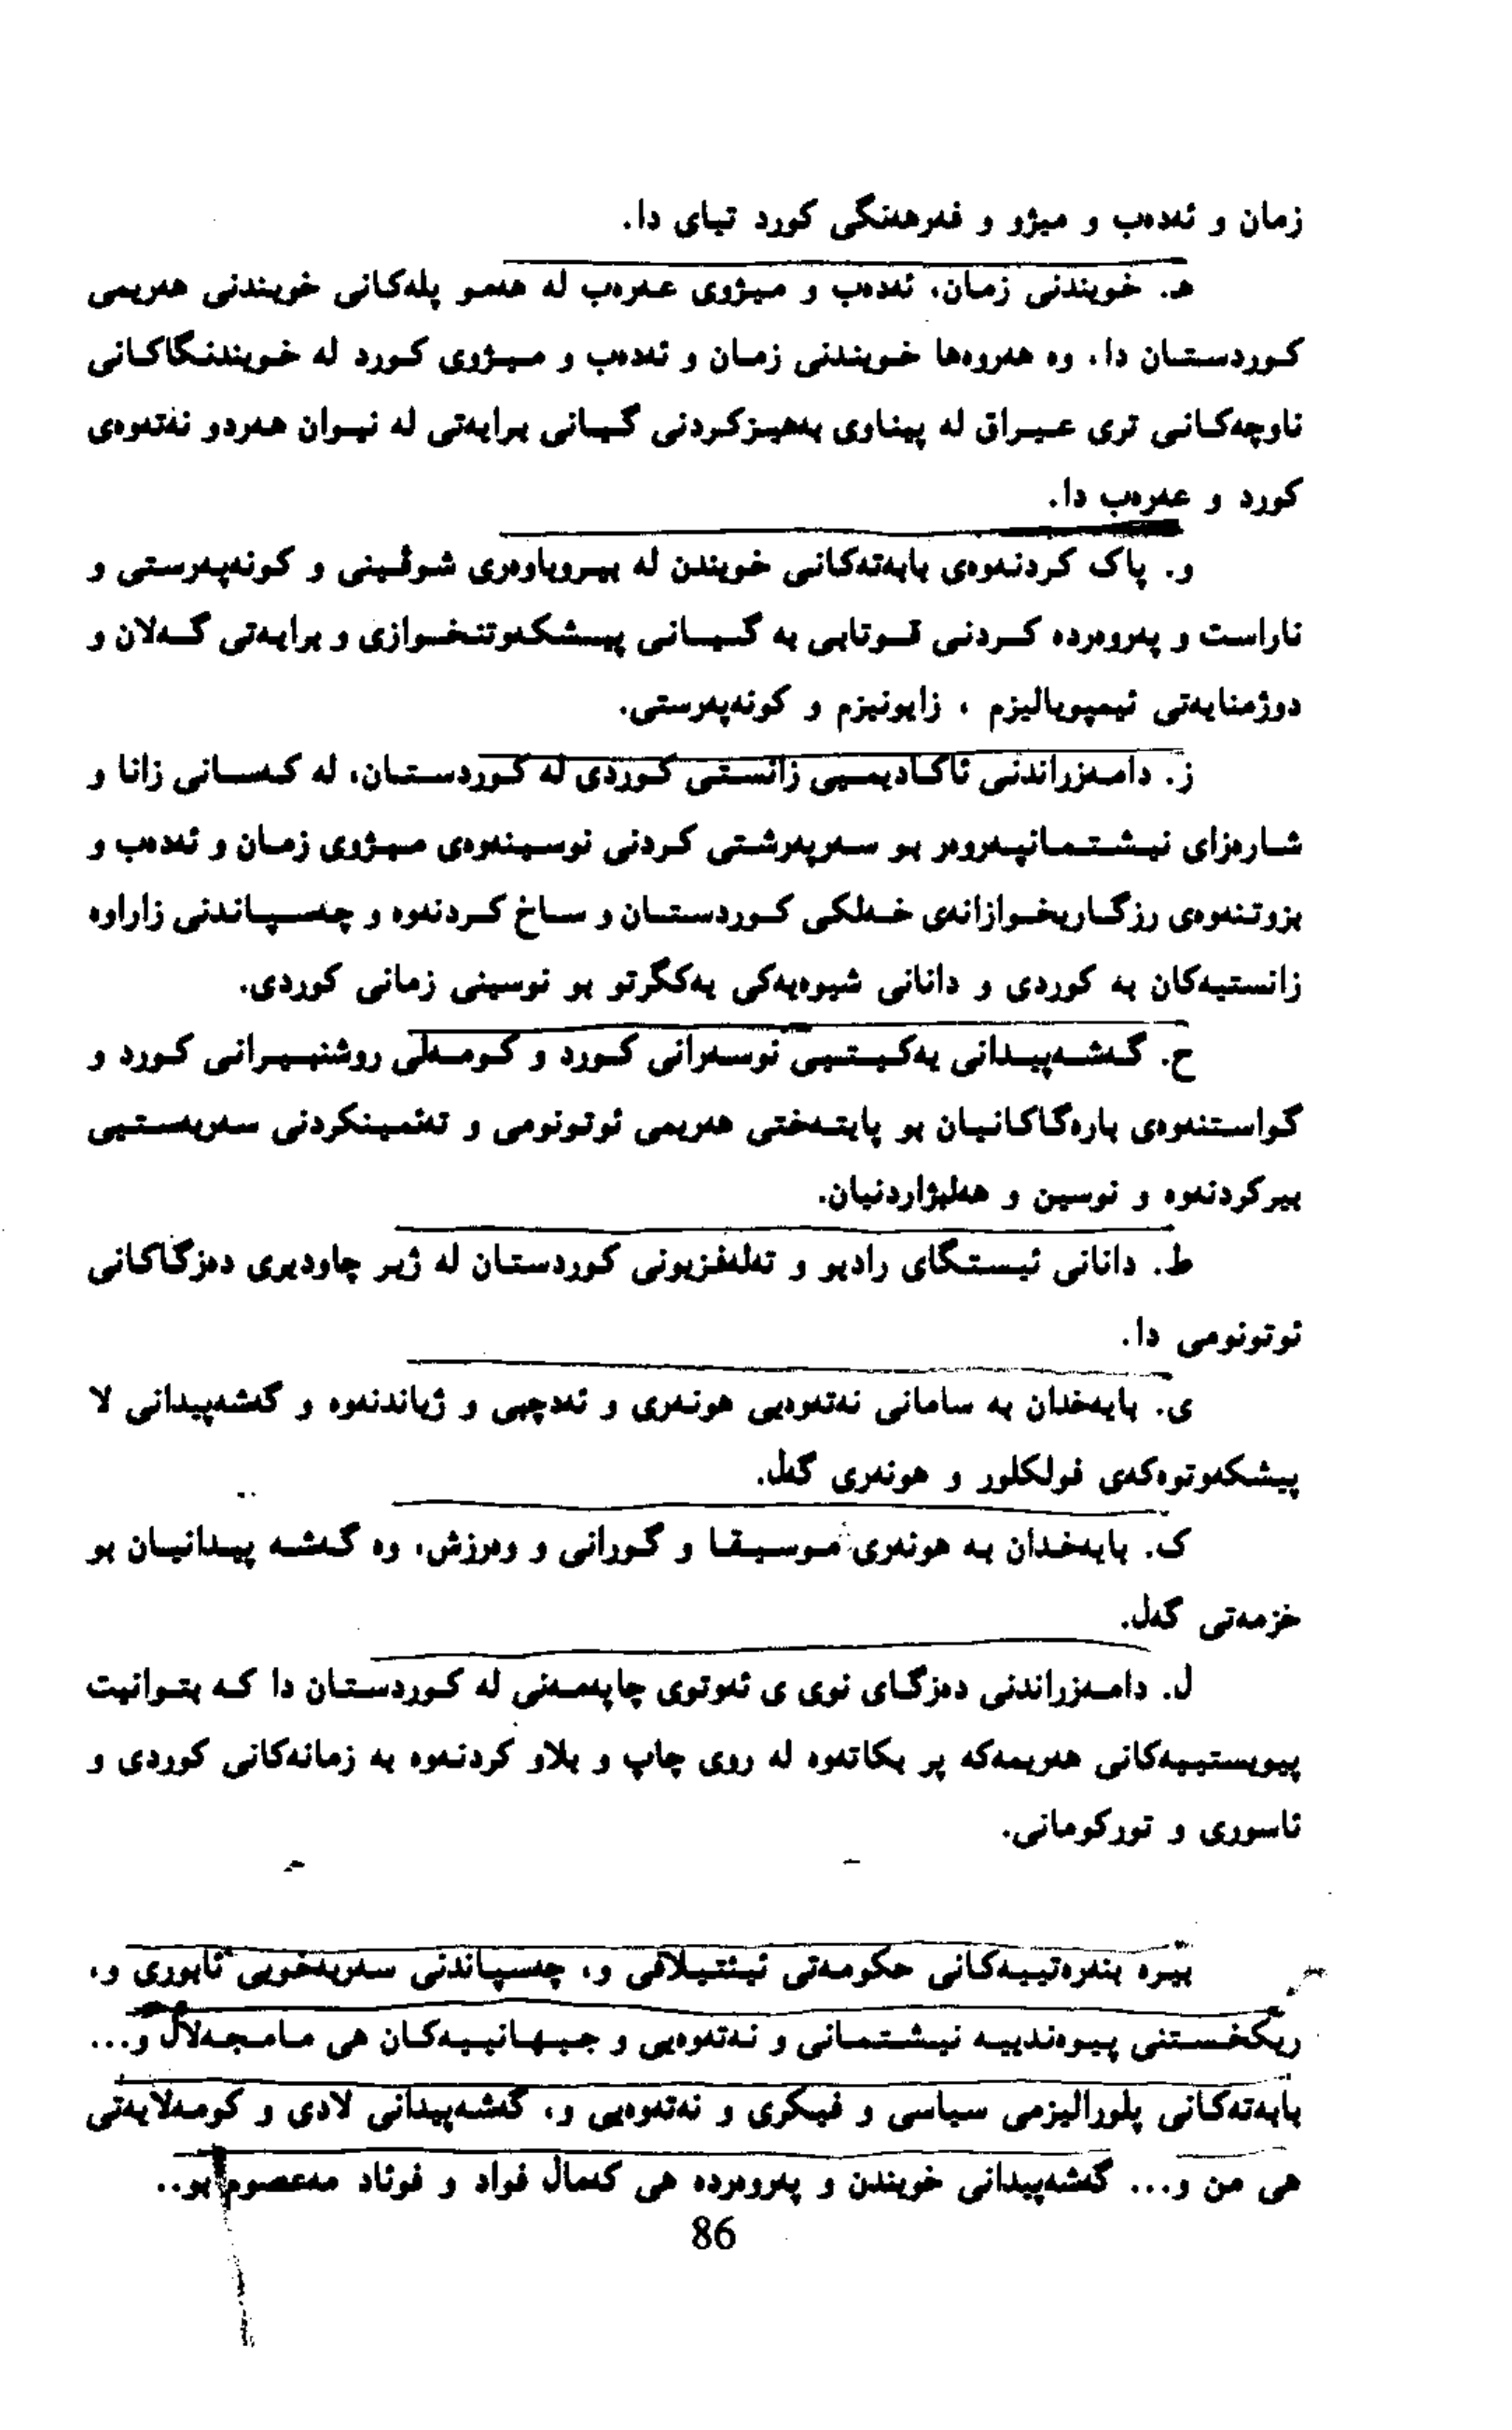 زمان و ئەدەب و میژو و فەرهەنگی کورد تیای دا.
هـ. خویندنی زمان، ئەدەب و میژوی عەرەب لە هەمو پلەکانی خویندنی هەریمی
کوردستان دا. وە هەروەها خویندنی زمان و ئەدەب و میژوی کورد لە خویندنگاکانی
ناوچەکانی تری عیراق لە پیناوی بەهیزکردنی گیانی برایەتی لە نیوان هەردو نەتەوەی
کورد و عەرەب دا.
و. پاک کردنەوەی بابەتەکانی خویندن لە بیروباوەری شوڤینی و کونەپەرستی و
ناراست و پەروەردە کردنی قوتابی بە گیانی پیشکەوتنخوازی و برایەتی گەلان و
دوژمنایەتی ئیمپریالیزم ، زایونیزم و کونەپەرستی.
ز. دامەزراندنی ئاکادیمیی زانستی کوردی لە کوردستان، لە کەسانی زانا و
شارەزای نیشتمانپەروەر بو سەرپەرشتی کردنی نوسینەوەی میژوی زمان و ئەدەب و
بزوتنەوەی رزگاریخوازانەی خەلکی کوردستان و ساخ کردنەوە و چەسپاندنی زاراوە
زانستیەکان بە کوردی و دانانی شیوەیەکی یەکگرتو بو نوسینی زمانی کوردی.
ح. گەشەپیدانی یەکیتیی نوسەرانی کورد و کومەلی روشنبیرانی کورد و
گواستنەوەی بارەگاکانیان بو پایتەختی هەریمی ئوتونومی و تەئمینکردنی سەربەستیی
بیرکردنەوە و نوسین و هەلبژاردنیان.
ط. دانانی ئیستگای رادیو و تەلەفزیونی کوردستان لە ژیر چاودیری دەزگاکانی
ئوتونومی دا.
ی. بایەخدان بە سامانی نەتەوەیی هونەری و ئەدەبیی و ژیاندنەوە و گەشەپیدانی لا
پیشکەوتوەکەی فولکلور و هونەری گەل.
ک. بایەخدان بە هونەری موسیقا و گورانی و وەرزش، وە گەشە پیدانیان بو
خزمەتی گەل.
ل. دامەزراندنی دەزگای نوی ی ئەوتوی چاپەمەنی لە کوردستان دا کە بتوانیت
پیویستییەکانی هەریمەکە پر بکاتەوە لە روی چاپ و بلاو کردنەوە بە زمانەکانی کوردی و
ئاسوری و تورکومانی.
بیرە بنەرەتییەکانی حکومەتی ئیئتیلافی و، چەسپاندنی سەربەخویی ئابوری و،
ریکخستنی پیوەندییە نیشتمانی و نەتەوەیی و جیهانییەکان هی مامجەلال و...
بابەتەکانی پلورالیزمی سیاسی و فیکری و نەتەوەیی و، گەشەپیدانی لادی و کومەلایەتی
هی من و... گەشەپیدانی خویندن و پەروەردە هی کەمال فواد و فوئاد مەعصوم بو..
86